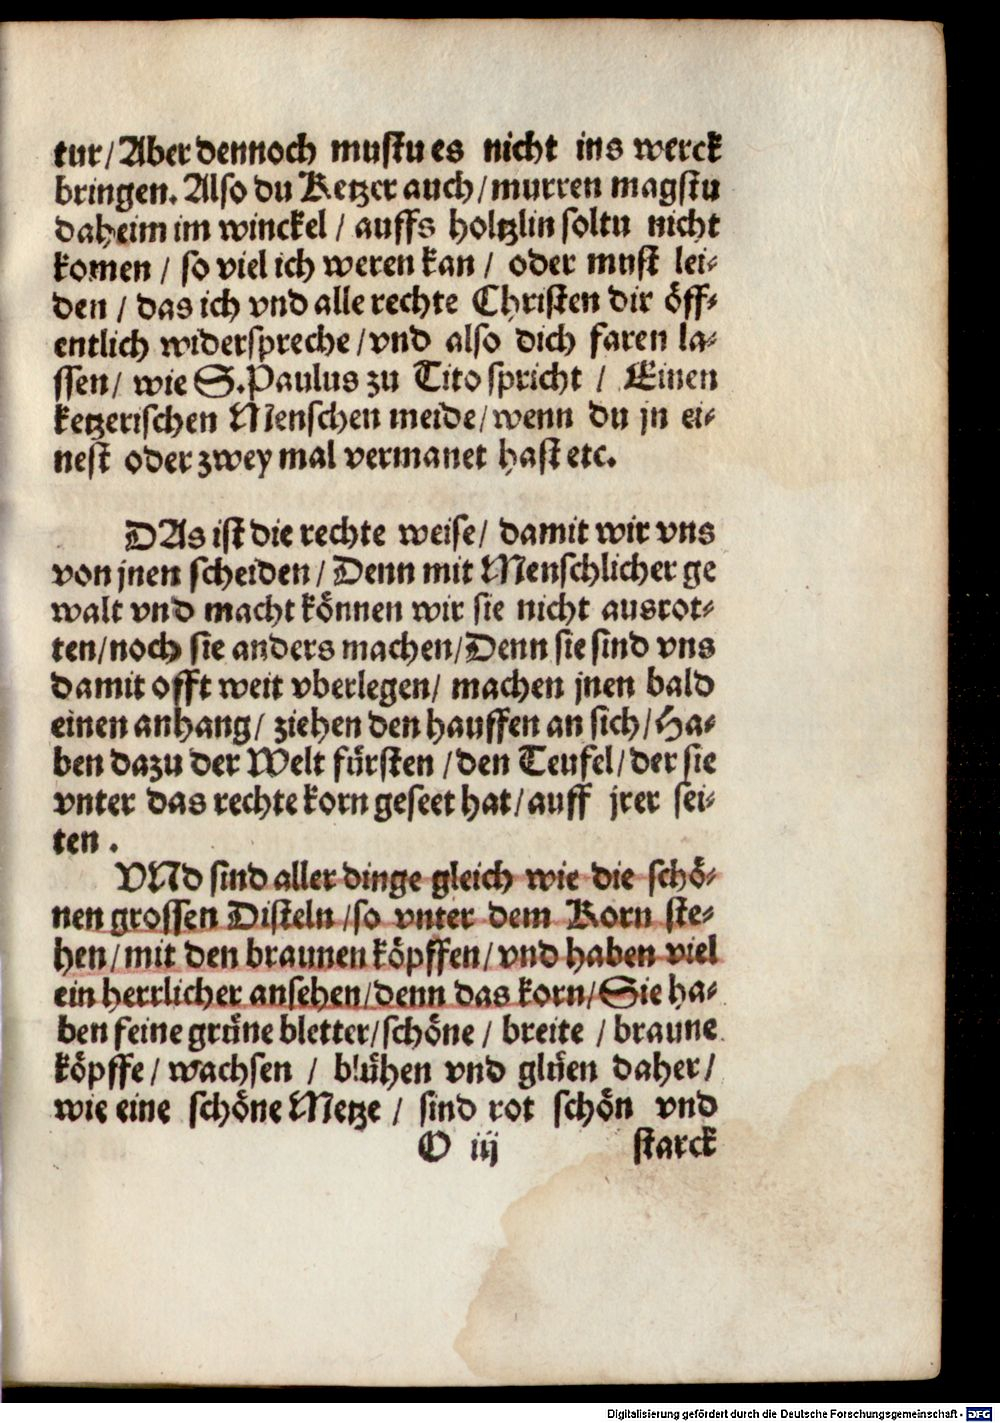 tur/Aber dennoch mustu es nicht ins werck
bringen. Also du Ketzer auch/murren magstu
daheim im winckel / auffs holtzlin soltu nicht
komen / so viel ich weren kan / oder must lei-
den / das ich vnd alle rechte Christen dir öff-
entlich widerspreche/vnd also dich faren la-
ssen/ wie S.Paulus zu Tito spricht / Einen
ketzerischen Menschen meide/wenn du jn ei-
nest oder zwey mal vermanet hast etc.
DAs ist die rechte weise/ damit wir vns
von jnen scheiden/ Denn mit Menschlicher ge
walt vnd macht können wir sie nicht ausrot-
ten/noch sie anders machen/Denn sie sind vns
damit offt weit vberlegen/ machen jnen bald
einen anhang/ ziehen den hauffen an sich/Ha-
ben dazu der Welt fürsten /den Teufel/der sie
vnter das rechte korn geseet hat/auff jrer sei-
ten .
VNd sind aller dinge gleich wie die schö-
nen grossen Disteln /so vnter dem Korn ste-
hen/mit den braunen köpffen/vnd haben viel
ein herrlicher ansehen/denn das korn/Sie ha-
ben feine grüne bletter/schöne / breite / braune
köpffe/ wachsen / blühen vnd glüen daher/
wie eine schöne Metze / sind rot schön vnd
O iij starck
Digitalisierung gefördert durch die Deutsche Forschungsgemeinschaft - DFG